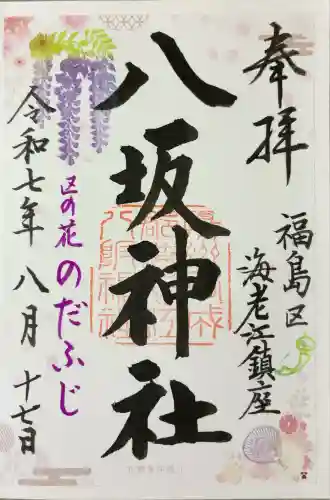 奉拝
福島区
海老江鎮座
八坂神社
区の花
のだふじ
令和七年八月十七日